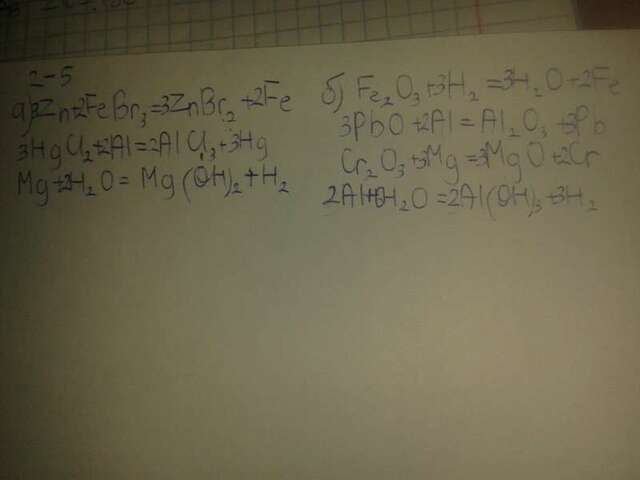 2-5
а) 3Zn+2FeBr₃=3ZnBr₂+2Fe
3HgCl₂+2Al=2AlCl₃+3Hg
Mg+2H₂O=Mg(OH)₂+H₂
б) Fe₂O₃+3H₂=3H₂O+2Fe
3PbO+2Al=Al₂O₃+3Pb
Cr₂O₃+3Mg=3MgO+2Cr
2Al+6H₂O=2Al(OH)₃+3H₂